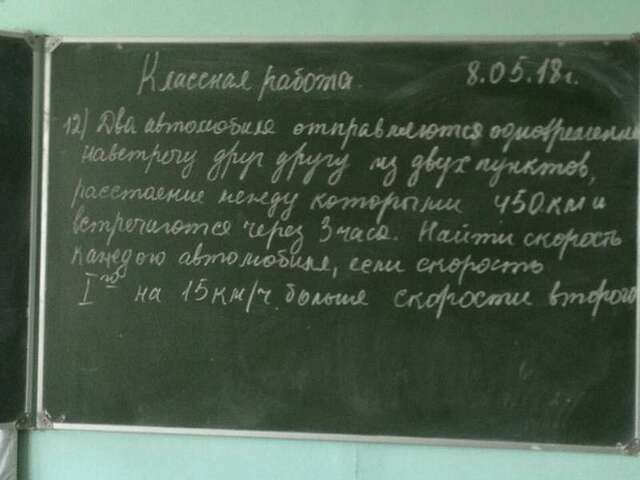 Классная работа. 8.05.18г.
12) Два автомобиля отправляются одновременно
навстречу друг другу из двух пунктов,
расстояние между которыми 450км и
встречаются через 3 часа. Найти скорость
каждого автомобиля, если скорость
I го на 15км/ч больше скорости второго